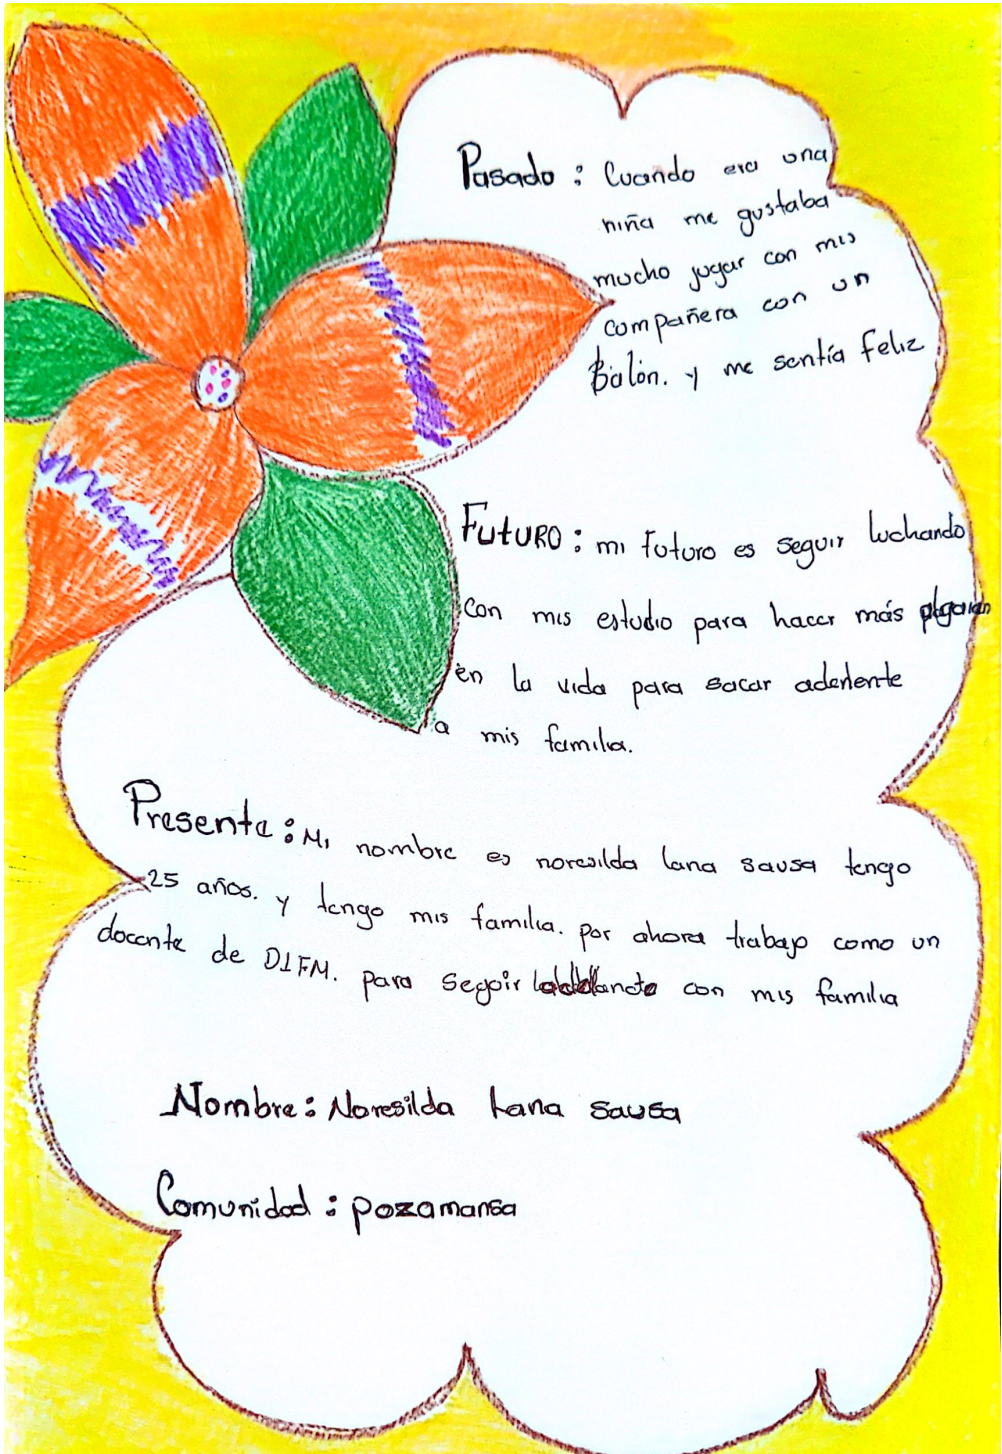 Pasado: Cuando era una
niña me gustaba
mucho jugar con mis
compañera con un
Balón. y me sentía feliz
FUTURO: mi futuro es seguir luchando
con mis estudio para hacer más
en la vida para sacar aderlente
a mis familia.
Presente: Mi nombre es noresilda lana sausa tengo
25 años. y tengo mis familia. por ahora trabajo como un
docente de DIFM. para seguir con mis familia
Nombre: Noresilda Lana sausa
Comunidad: pozamansa